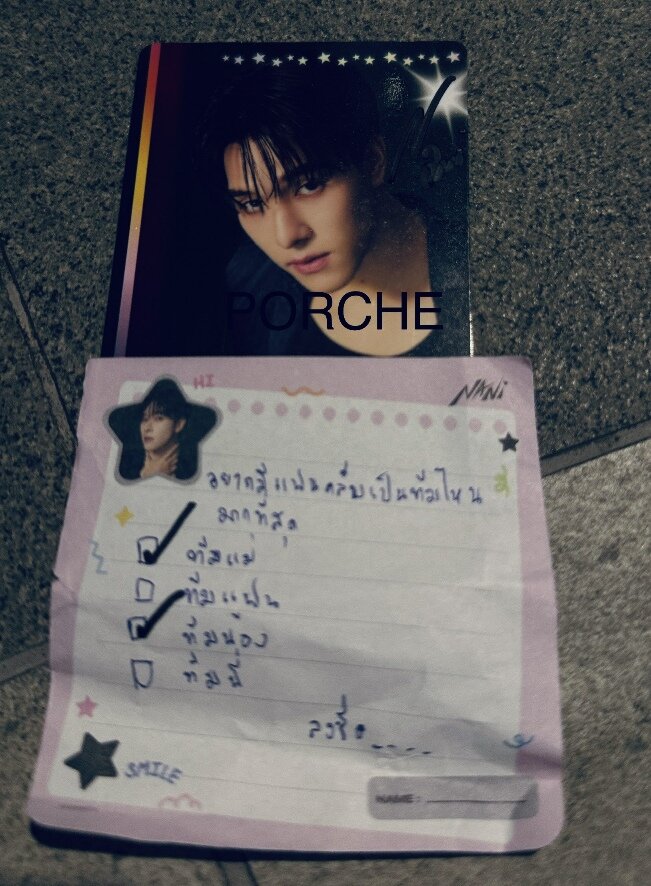 PORCHE
HI
NANi
อยากมีแฟนคลับเป็นทีมไหน
มากที่สุด
ทีมแม่
ทีมแฟน
ทีมน้อง
ทีมพี่
ลงชื่อ----
SMILE
NAME: